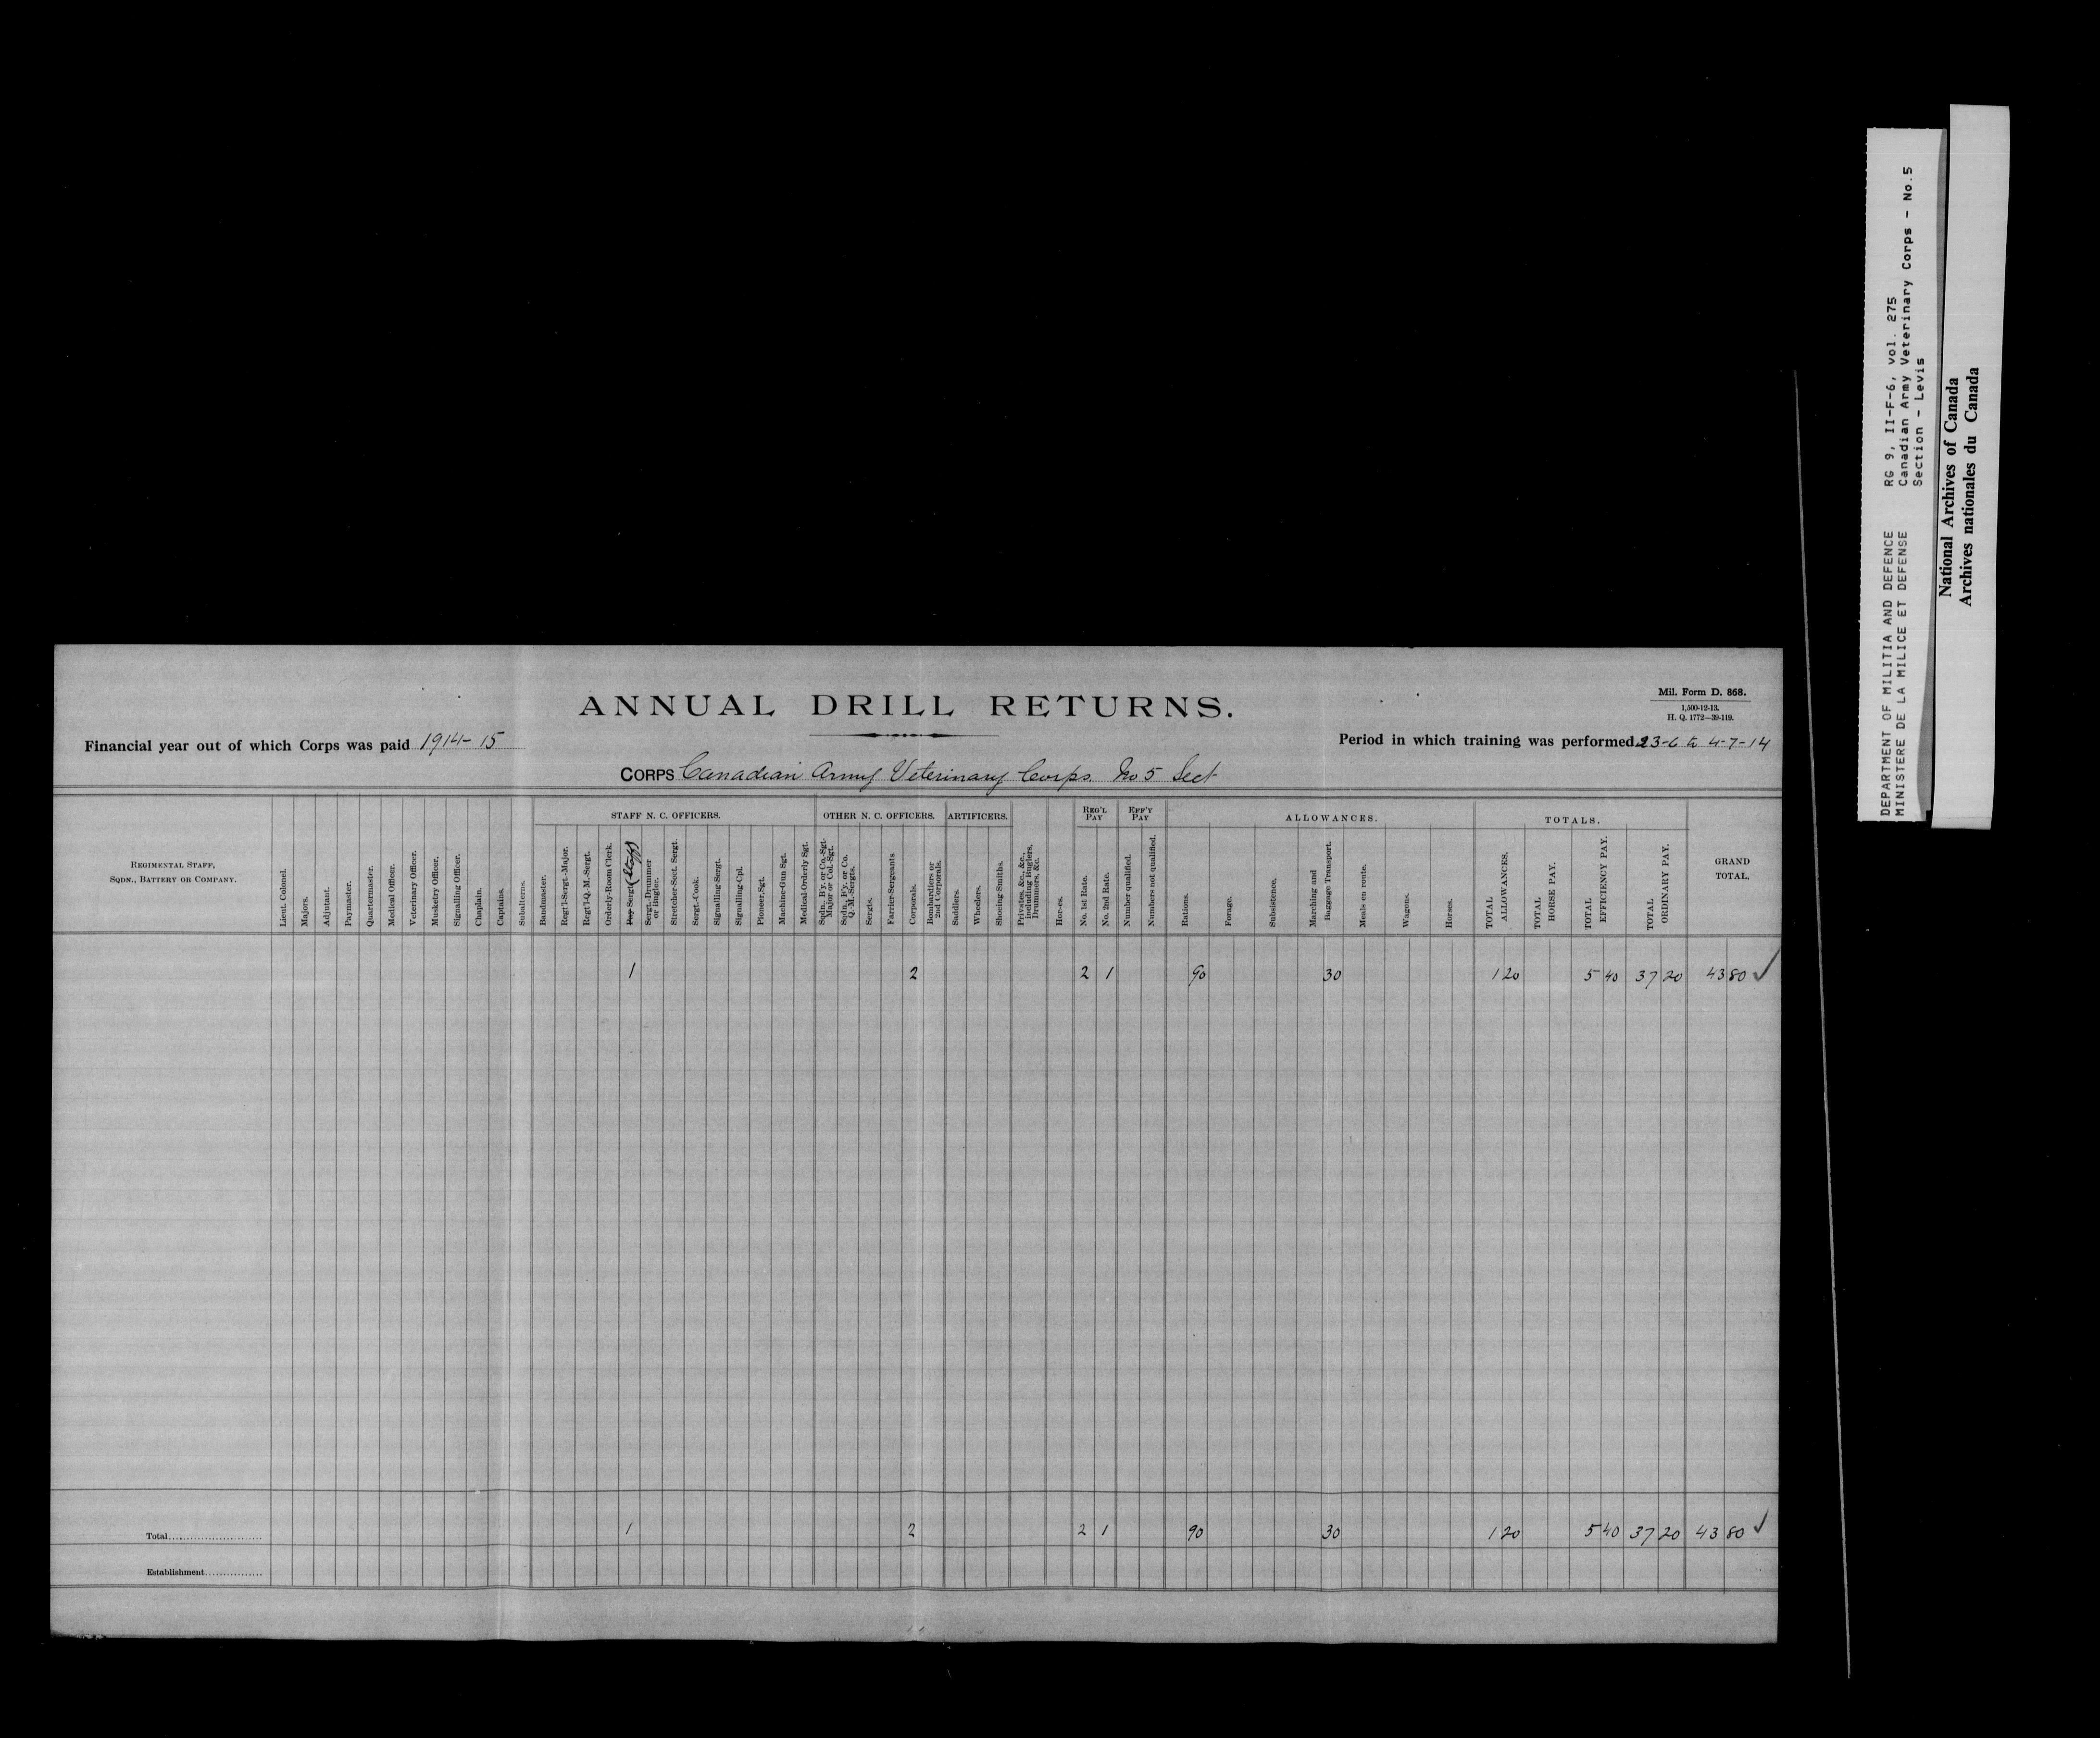 ANNUAL DRILL RETURNS.
Mil. Form D. 868.
1,500-12-13.
H. Q. 1772—39-119.
Financial year out of which Corps was paid 1914-15
Period in which training was performed 23-6 to 4-7-14
CORPS Canadian Army Veterinary Corps. No 5 Sect
REGIMENTAL STAFF,
SQDN., BATTERY OR COMPANY.
Lieut. Colonel.
Majors.
Adjutant.
Paymaster.
Quartermaster.
Medical Officer.
Veterinary Officer.
Musketry Officer.
Signalling Officer.
Chaplain.
Captains.
Subalterns.
STAFF N. C. OFFICERS.
Bandmaster.
Reg't'l-Sergt.-Major.
Reg't'l-Q.-M.-Sergt.
Orderly-Room Clerk.
Pay Sergt (Staff)
Sergt.-Drummer
or Bugler.
Stretcher-Sect. Sergt.
Sergt.-Cook.
Signalling-Sergt.
Signalling-Cpl.
Pioneer Sgt.
Machine-Gun Sgt.
Medical-Orderly Sgt.
OTHER N. C. OFFICERS.
Sqdn., B'y. or Co.-Sgt.
Major or Col.-Sgt.
Sqdn., B'y. or Co.
Q.-M.-Sergts.
Sergts.
Farrier-Sergeants.
Corporals.
Bombardiers or
2nd Corporals.
ARTIFICERS.
Saddlers.
Wheelers.
Shoeing-Smiths.
Privates, &c., &c.,
including Buglers,
Drummers, &c.
Hor-es.
REG'L
PAY
No. 1st Rate.
No. 2nd Rate.
EFF'Y
PAY
Number qualified.
Numbers not qualified.
ALLOWANCES.
Rations.
Forage.
Subsistence.
Marching and
Baggage Transport.
Meals en route.
Wagons.
Horses.
TOTALS.
TOTAL
ALLOWANCES.
TOTAL
HORSE PAY.
TOTAL
EFFICIENCY PAY.
TOTAL
ORDINARY PAY.
GRAND
TOTAL.
1 2 2 1 90 30 1 20 5 40 37 20 43 80 ✓
Total 1 2 2 1 90 30 1 20 5 40 37 20 43 80 ✓
Establishment
DEPARTMENT OF MILITIA AND DEFENCE RG 9, II-F-6, vol. 275
MINISTERE DE LA MILICE ET DEFENSE Canadian Army Veterinary Corps - No.5
Section - Levis
National Archives of Canada
Archives nationales du Canada